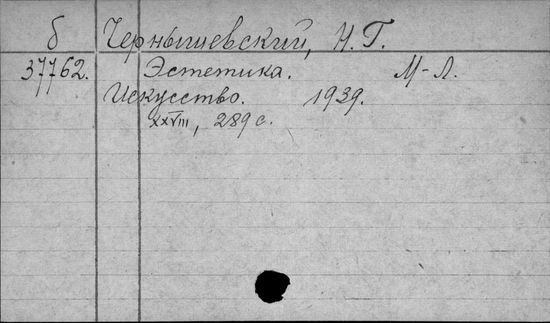 б Чернышевский, Н. Г.
37762. Эстетика. М-Л.
Искусство. 1939.
XXVIII, 289 с.